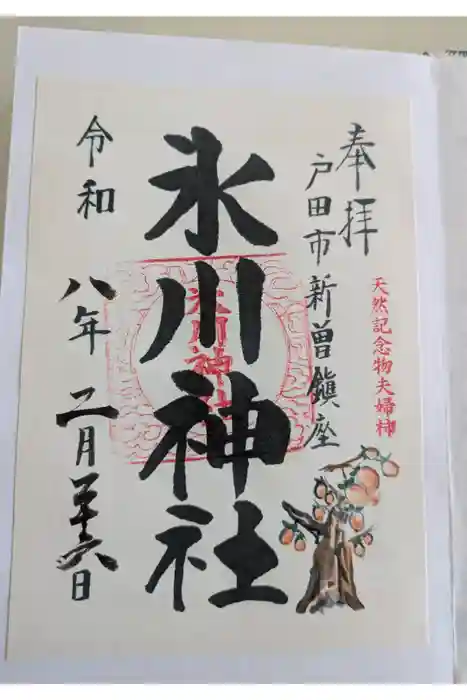 奉拝
戸田市新曽鎮座
天然記念物夫婦柿
氷川神社
氷川神社
令和八年二月二十六日